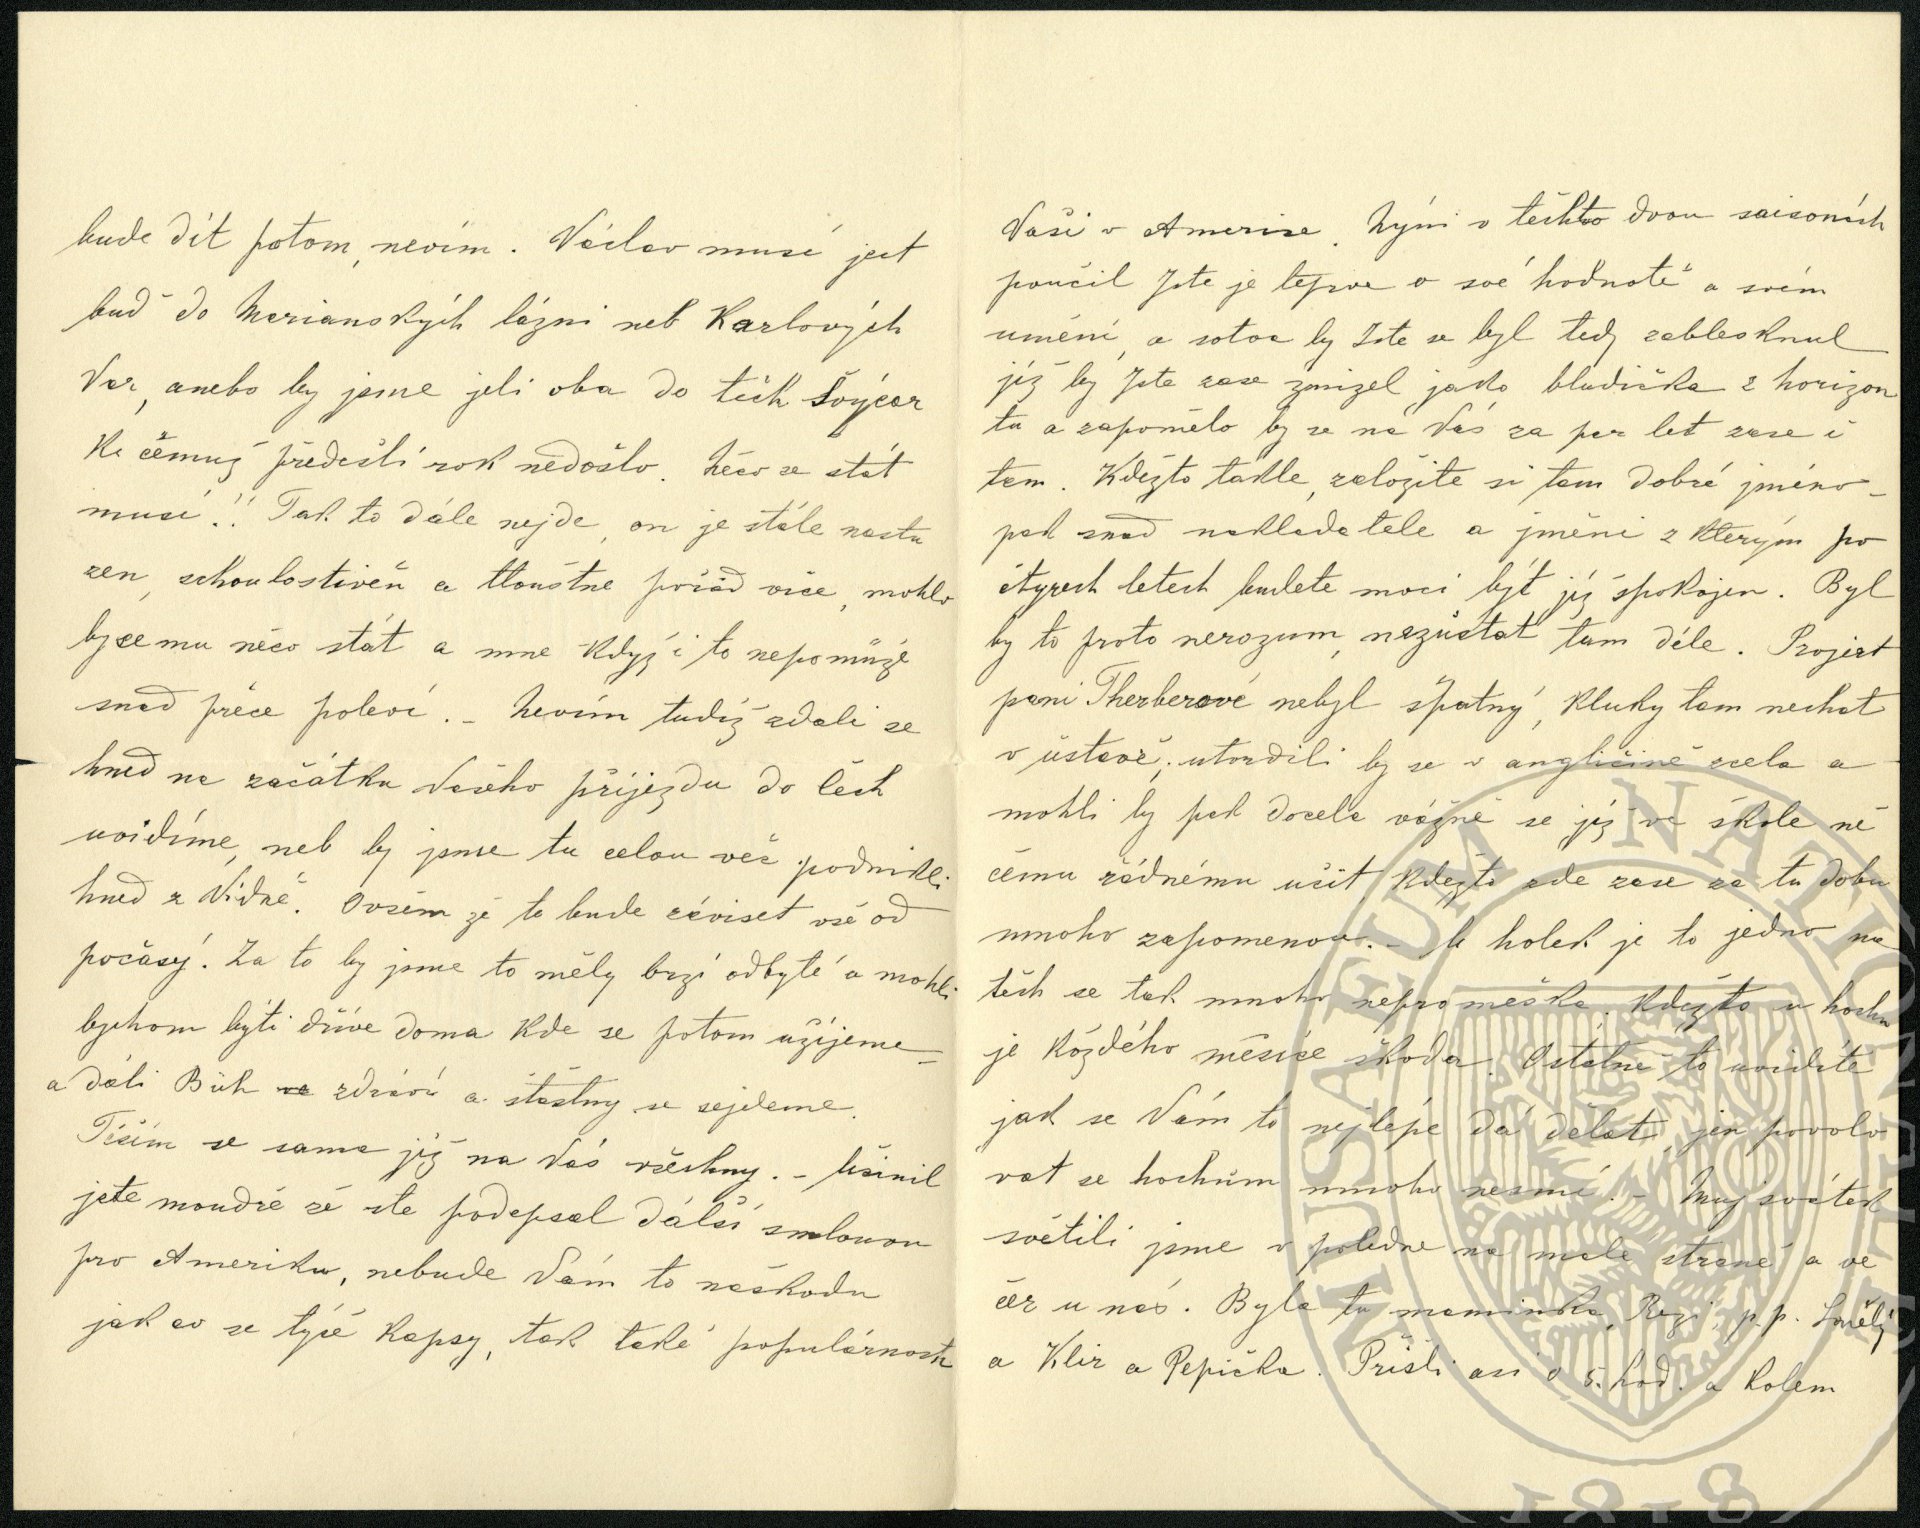 bude dít potom, nevím. Václav musí ject
buď do Marianských lázni neb Karlových
Var, anebo by jsme jeli oba do těch Švýcar
Ke čemuž předešlí rok nedošlo. Něco se stát
musí!! Tak to dále nejde, on je stále nastu
zen, schoulostivěn a tloustne pořád více, mohlo
by se mu něco stát a mne když i to nepomůže
snad přéce poleví. – Nevím tudíž zdali se
hned na začátku Vašeho příjezdu do Čech
uvidíme, neb by jsme tu celou věc podnikli
hned z Vídně. Ovšem že to bude záviset vše od
počasý. Za to by jsme to měly brzi odbyté a mohli
bychom býti dříve doma kde se potom užijeme –
a dáli Bůh zdrávi a štastny se sejdeme.
Těším se sama již na Vás všechny. – Učinil
jste moudře že ste podepsal dálší smlouvu
pro Ameriku, nebude Vám to naškodu
jak co se týče kapsy, tak také popularnosti
Vaši v Americe. Nýni v těchto dvou saisonách
poučil Jste je teprve o své hodnotě a svém
umění, a sotva by Jste se byl tedy zablesknul
již by Jste zase zmizel jako bludička z horizon
tu a zapomělo by se na Vás za par let zase i
tam. Kdežto takle, založite si tam dobré jméno –
pak snad nakladatele a jměni z kterým po
čtyrech letech budete moci být již spokojen. Byl
by to proto nerozum, nezůstat tam déle. Projekt
pani Therberové nebyl špatný, kluky tam nechat
v ústavě, utvrdili by se v angličině zcela a
mohli by pak docela vážně se již ve škole ně
čemu řádnému učit, kdežto zde zase za tu dobu
mnoho zapomenou. – U holek je to jedno na
těch se tak mnoho nepromeška. Kdežto u hochu
je káždého měsice škoda. Ostatně to uvidíte
jak se Vám to nejlépe dá dělat, jen povolo
vat se hochům mnoho nesmí. – Muj svátek
světili jsme v poledne na male straně a ve
čer u nás. Byla tu maminka, Rezi, p. p. Smělý
a Klir a Pepička. Přišli asi o 5. hod. a kolem
MUSAEUM NATIONALE
1818